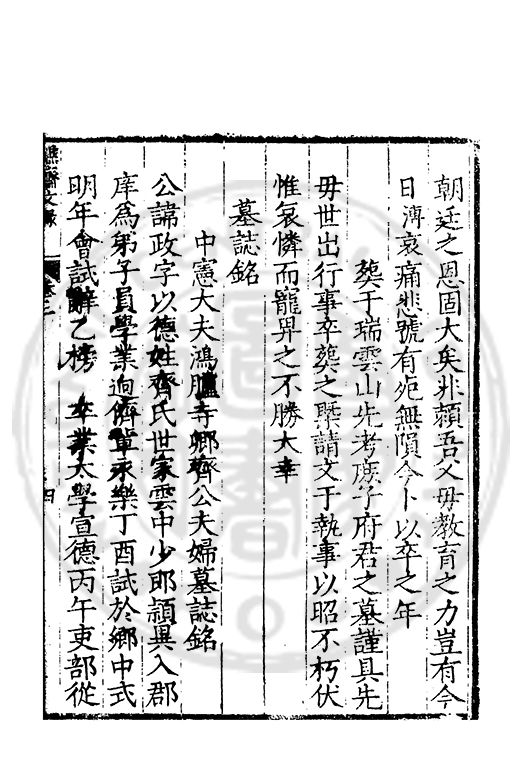 朝廷之恩固大矣非賴吾父母教育之力豈有今
日溥哀痛悲號有死無隕今卜以卒之年
葬于瑞雲山先考庶子府君之墓謹具先
母世出行事卒葬之槩請文于執事以昭不朽伏
惟哀憐而寵畀之不勝大幸
墓誌銘
中憲大夫鴻臚寺卿齊公夫婦墓誌銘
公諱政字以德姓齊氏世家雲中少即穎異入郡
庠為弟子員學業迥儕軰永樂丁酉試於鄉中式
明年會試辭乙榜 卒業太學宣德丙午吏部從
文錄
卷三
四